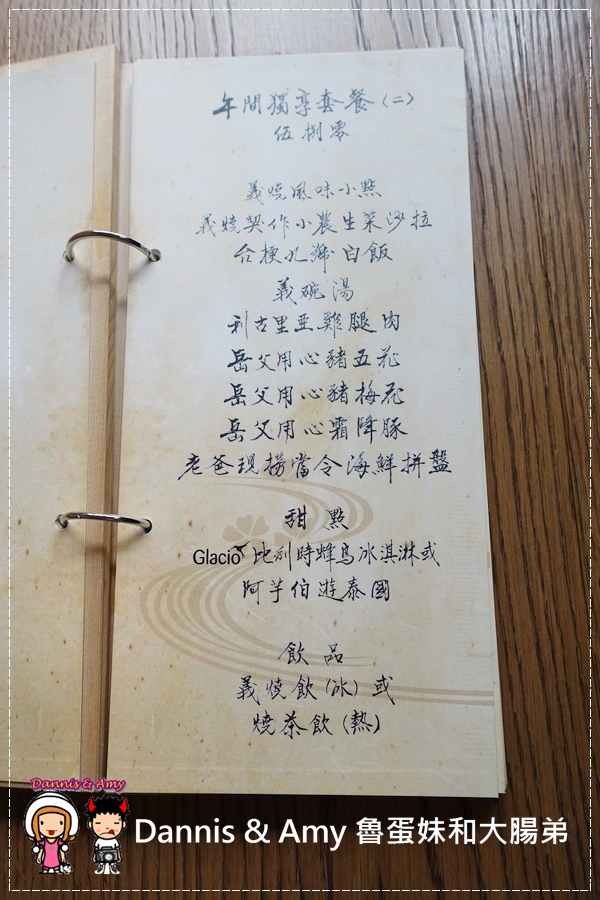 午間獨享套餐(二)
伍捌零
義燒風味小點
義燒契作小農生菜沙拉
台梗九號白飯
義碗湯
利古里亞雞腿肉
岳父用心豬五花
岳父用心豬梅花
岳父用心霜降豚
老爸現撈當令海鮮拼盤
甜點
Glacio 比利時蜂鳥冰淇淋或
阿芋伯遊泰國
飲品
義燒飲(冰)或
燒茶飲(熱)
Dannis & Amy
Dannis & Amy 魯蛋妹和大腸弟